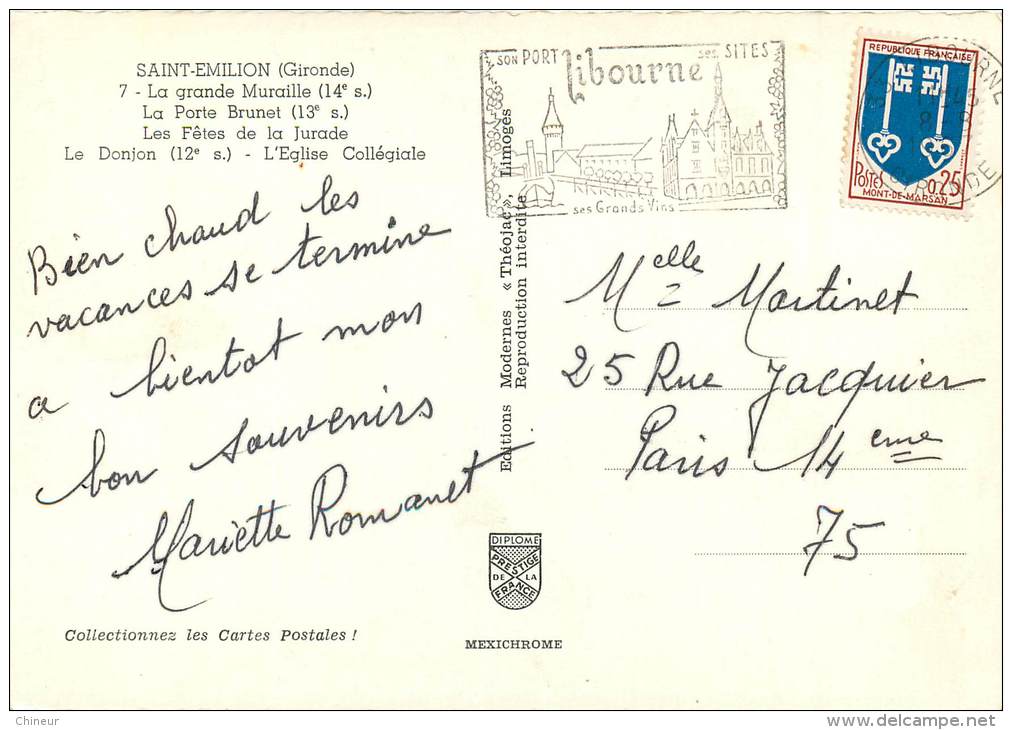 SAINT-EMILION (Gironde)
7 - La grande Muraille (14e s.)
La Porte Brunet (13e s.)
Les Fêtes de la Jurade
Le Donjon (12e s.) - L'Eglise Collégiale
Bien chaud les
vacances se termine
a bientot mon
bon souvenirs
Mariette Romanet
Collectionnez les Cartes Postales !
Editions Modernes « Théojac », Limoges
Reproduction interdite
DIPLOME
PRESTIGE
DE LA
FRANCE
MEXICHROME
SON PORT ses SITES
libourne
ses Grands Vins
REPUBLIQUE FRANÇAISE
POSTES 0,25
MONT-DE-MARSAN
GIRONDE
Melle Martinet
25 Rue Jacquier
Paris 14 eme
75
Chineur
delcampe.net